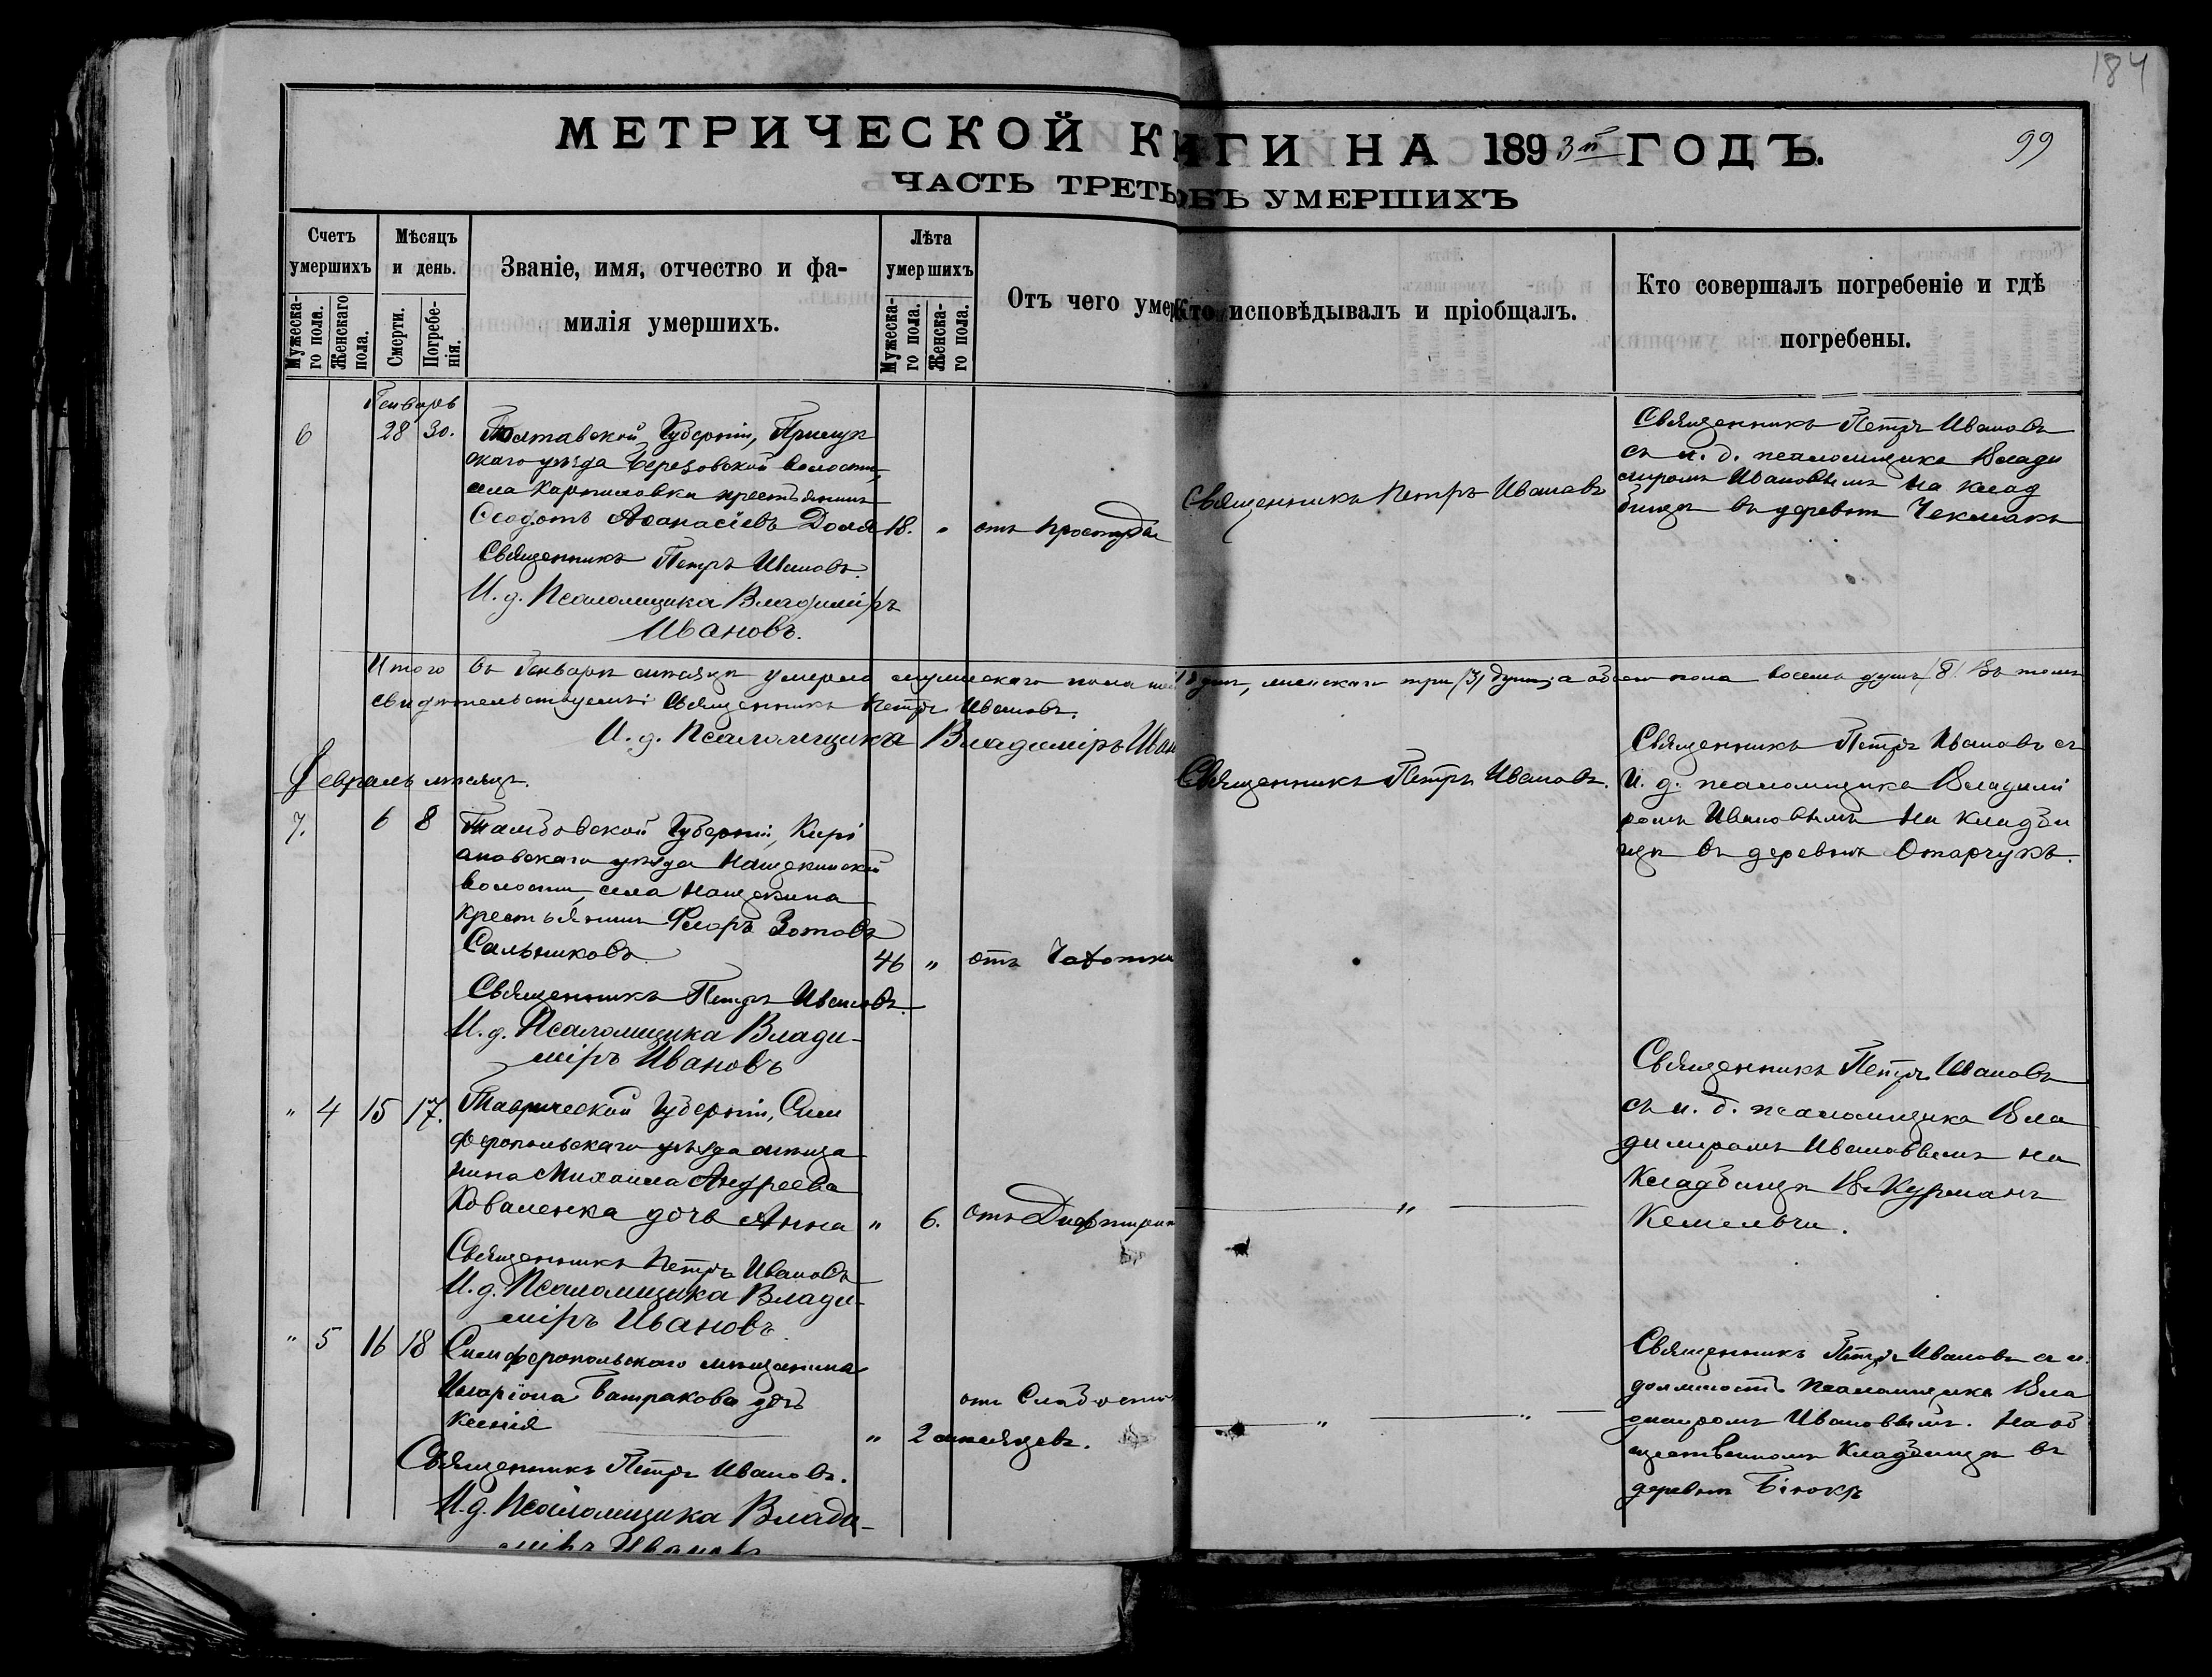 184
МЕТРИЧЕСКОЙ КНИГИ НА 1893й ГОДЪ.
99
ЧАСТЬ ТРЕТЬ ОБЪ УМЕРШИХЪ
Счетъ умершихъ
Мужеска-го пола.
Женскаго пола.
Мѣсяцъ и день.
Смерти.
Погребе-нія.
Званіе, имя, отчество и фа-
милія умершихъ.
Лѣта умершихъ
Мужеска-го пола.
Женска-го пола.
Отъ чего умер
Кто исповѣдывалъ и пріобщалъ.
Кто совершалъ погребеніе и гдѣ
погребены.
Генварь
6 28 30.
Полтавской Губерніи, Прилук
скаго уѣзда Березовской волости,
села Карпиловки крестьянинъ
Ѳеодотъ Аѳанасіевъ Доля 18. " отъ простуды
Священникъ Петръ Ивановъ.
И. д. Псаломщика Владиміръ
Ивановъ.
Священникъ Петръ Ивановъ
Священникъ Петръ Ивановъ
съ и. д. псаломщика Влади
миромъ Ивановымъ на клад
бищѣ въ деревнѣ Чекмакъ
Итого въ Генварѣ мѣсяцѣ умерло мужескаго пола душъ, женскаго три /3/ души, а обоего пола восемь душъ /8/. Въ томъ
свидѣтельствуемъ: Священникъ Петръ Ивановъ.
И. д. Псаломщика Владиміръ Иван
Февраль мѣсяцъ.
7. 6 8
Тамбовской Губерніи, Кирс
ановскаго уѣзда Нащекинской
волости, села Нащекина
крестьянинъ Флоръ Зотовъ
Сальниковъ 46 " отъ Чахотки
Священникъ Петръ Ивановъ.
И. д. Псаломщика Влади-
міръ Ивановъ
Священникъ Петръ Ивановъ.
Священникъ Петръ Ивановъ съ
И. д. псаломщика Владими
ромъ Ивановымъ на кладби
щѣ въ деревнѣ Отарчукъ.
" 4 15 17.
Таврической Губерніи, Сим
феропольскаго уѣзда мѣща
нина Михаила Андреева
Коваленка дочь Анна " 6. отъ Дифтерит
Священникъ Петръ Ивановъ
И. д. Псаломщика Влади-
міръ Ивановъ.
"
Священникъ Петръ Ивановъ
съ и. д. псаломщика Вла
димиромъ Ивановымъ на
Кладбищѣ В. Курманъ
Кемельчи.
" 5 16 18
Симферопольскаго мѣщанина
Иларіона Батракова дочь
Ксенія " 2 мѣсяцевъ.
отъ Слабости
Священникъ Петръ Ивановъ.
И. д. Псаломщика Влади-
міръ Ивановъ
" "
Священникъ Петръ Ивановъ съ и.
должность псаломщика Вла
димиромъ Ивановымъ. На об
щественномъ Кладбищѣ въ
деревнѣ Біюкъ